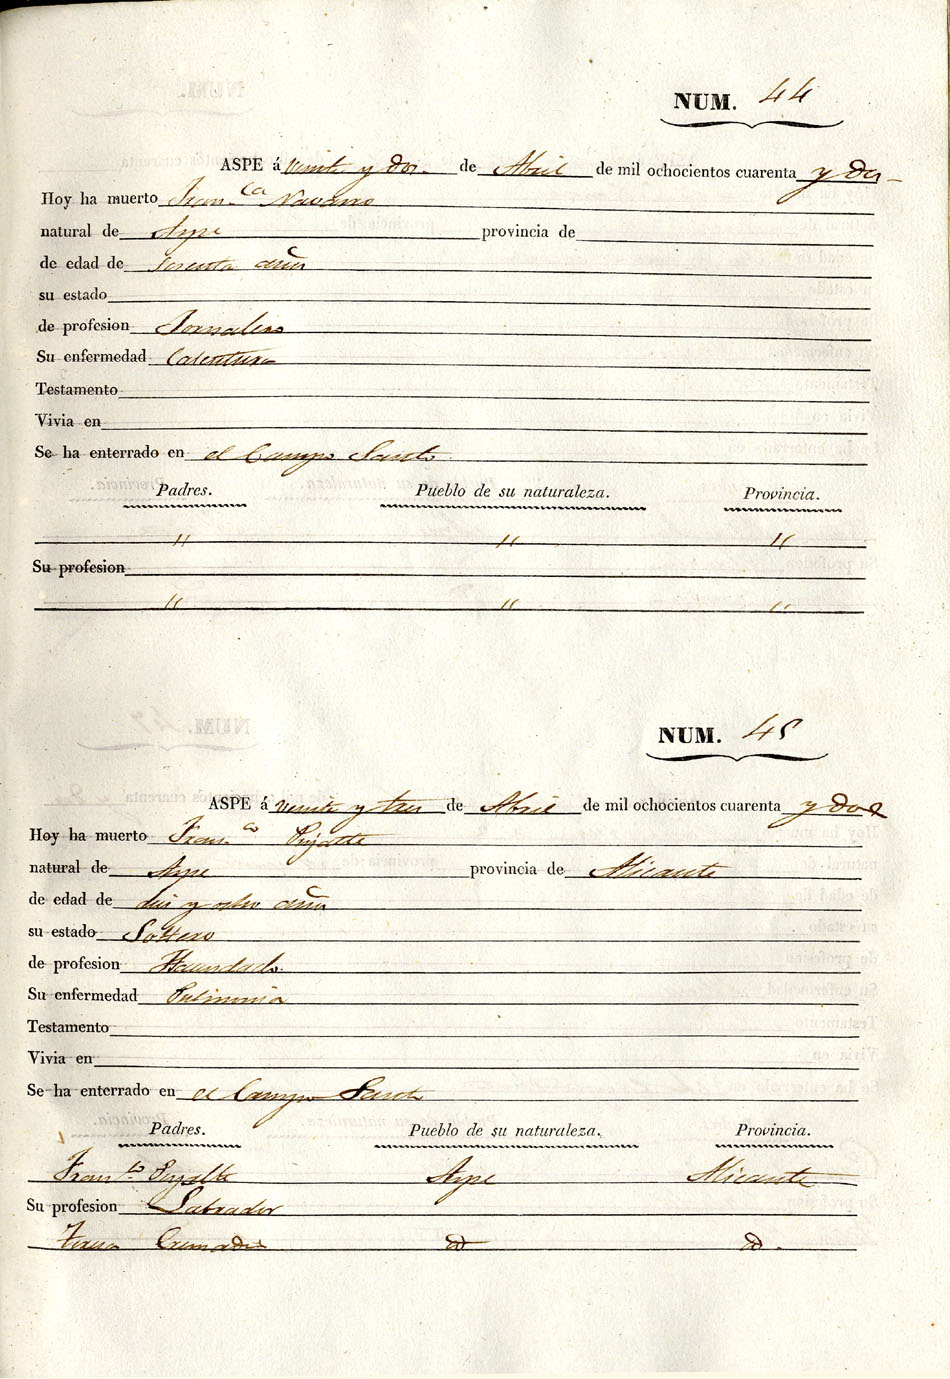 NUM. 44
ASPE á veinte y dos de Abril de mil ochocientos cuarenta y dos
Hoy ha muerto Fran.ca Navarro
natural de Aspe provincia de
de edad de sesenta años
su estado
de profesion Jornalero
Su enfermedad Calentura
Testamento
Vivia en
Se ha enterrado en el Campo Santo
Padres. Pueblo de su naturaleza. Provincia.
" " "
Su profesion
" " "
NUM. 45
ASPE á veinte y tres de Abril de mil ochocientos cuarenta y dos
Hoy ha muerto Fran.co
natural de Aspe provincia de Alicante
de edad de diez y ocho años
su estado Soltero
de profesion Hacendado
Su enfermedad Pulmonia
Testamento
Vivia en
Se ha enterrado en el Campo Santo
Padres. Pueblo de su naturaleza. Provincia.
Fran.co Aspe Alicante
Su profesion Labrador
Teresa Cremades id id.